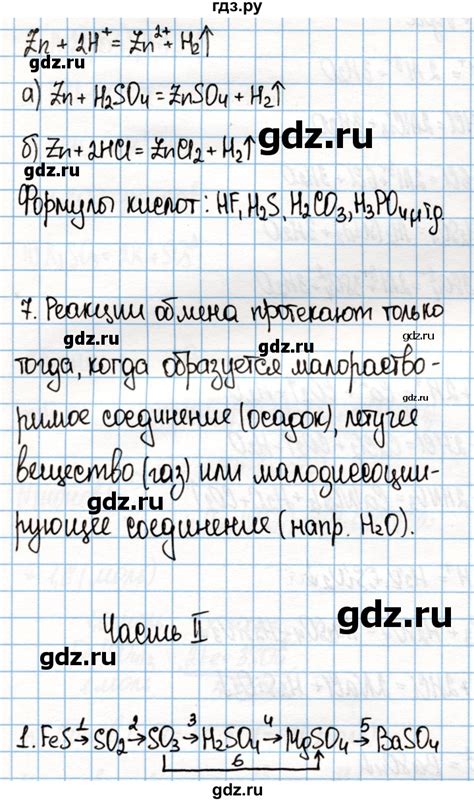 гдз.ру
Zn + 2H⁺ = Zn²⁺ + H₂↑
gdz.ru
а) Zn + H₂SO₄ = ZnSO₄ + H₂↑
gdz.ru
б) Zn + 2HCl = ZnCl₂ + H₂↑
gdz.ru
Формулы кислот: HF, H₂S, H₂CO₃, H₃PO₄ и т.д.
gdz.ru
7. Реакции обмена протекают только
gdz.ru
gdz.ru
тогда, когда образуется малораство-
римое соединение (осадок), летучее
gdz.ru
вещество (газ) или малодиссоции-
gdz.ru
рующее соединение (напр. H₂O).
gdz.ru
Часть II
gdz.ru
1. FeS →¹ SO₂ →² SO₃ →³ H₂SO₄ →⁴ MgSO₄ →⁵ BaSO₄
6
gdz.ru
gdz.ru